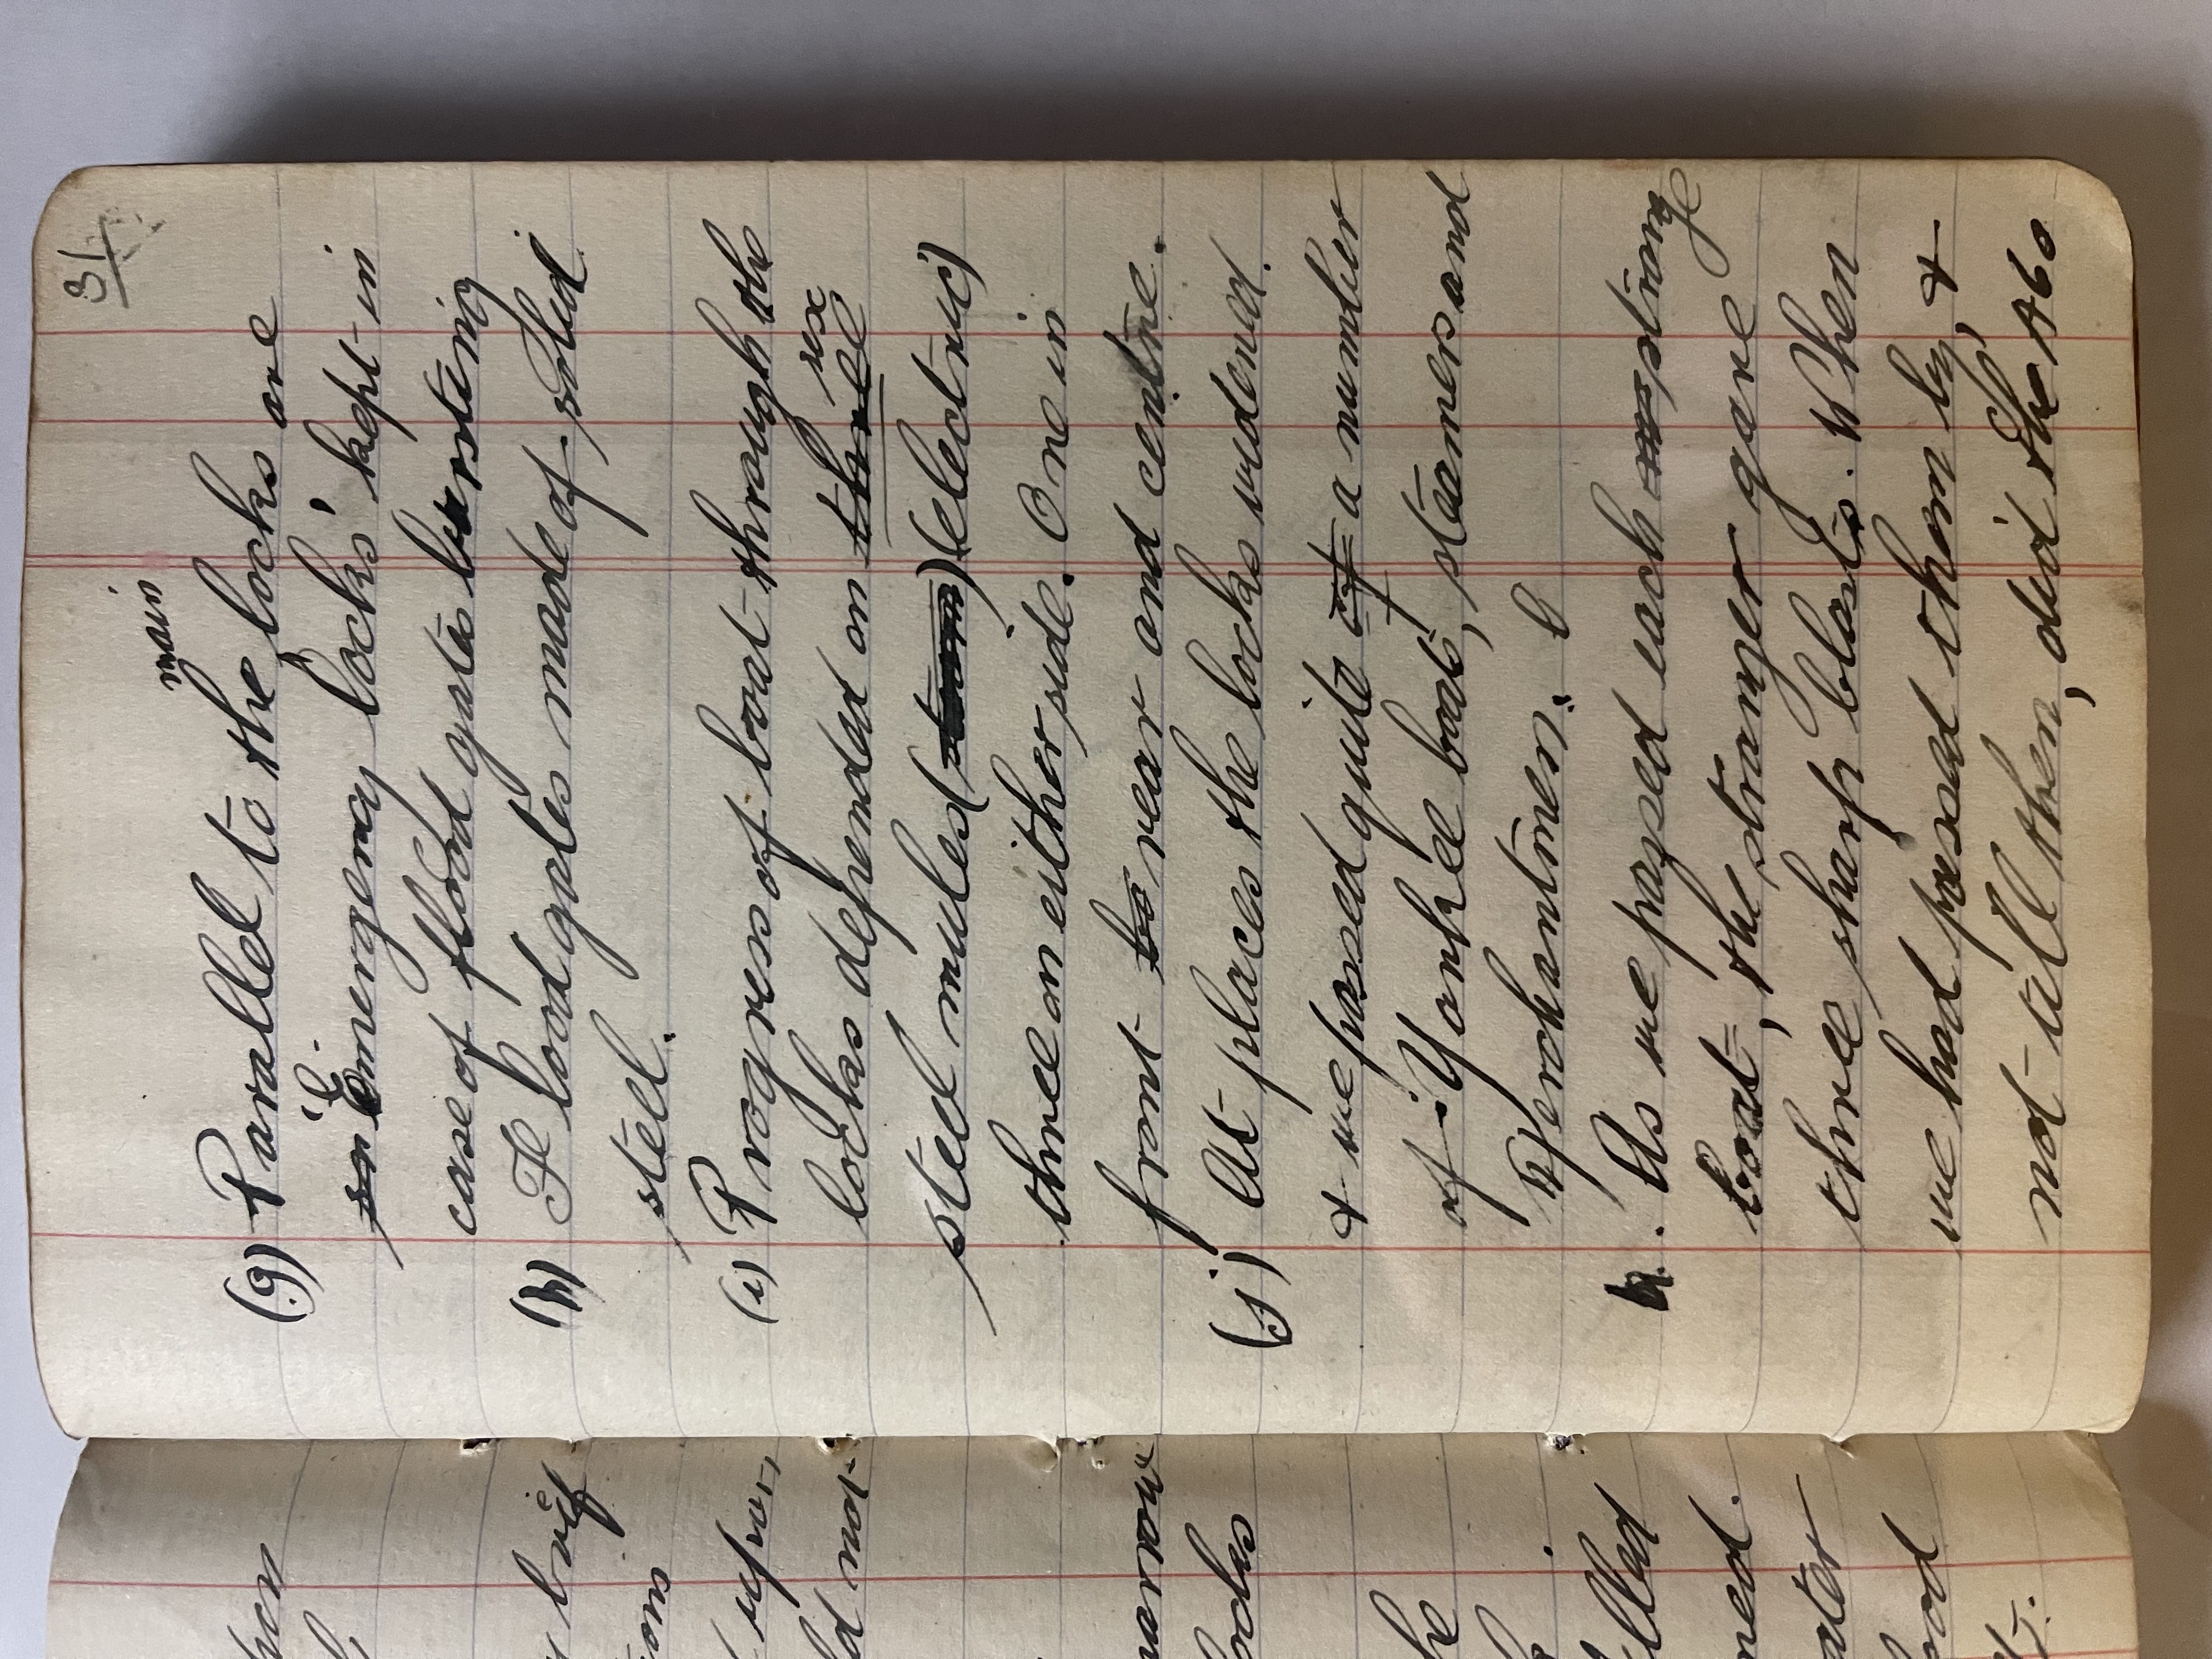 31
main
(g) Parallel to the locks are
'Emergency locks' kept in
case of flood gates bursting
(h) Flood gates made of solid
steel.
(i) Progress of boat through the
six
locks depended on three
steel mules (steam) (electric)
three on either side. One in
front to rear and centre.
(j) At places the locks widened.
& we passed quite of a number
of Yankee boats, steamers and
Merchantmen.
k. As we passed each strange
boat, the stranger gave
three sharp blasts. When
we had passed them by, &
not till then, did the Abo
hen
brief
ions
ld not
narrow
locks
he
lled
med.
ater